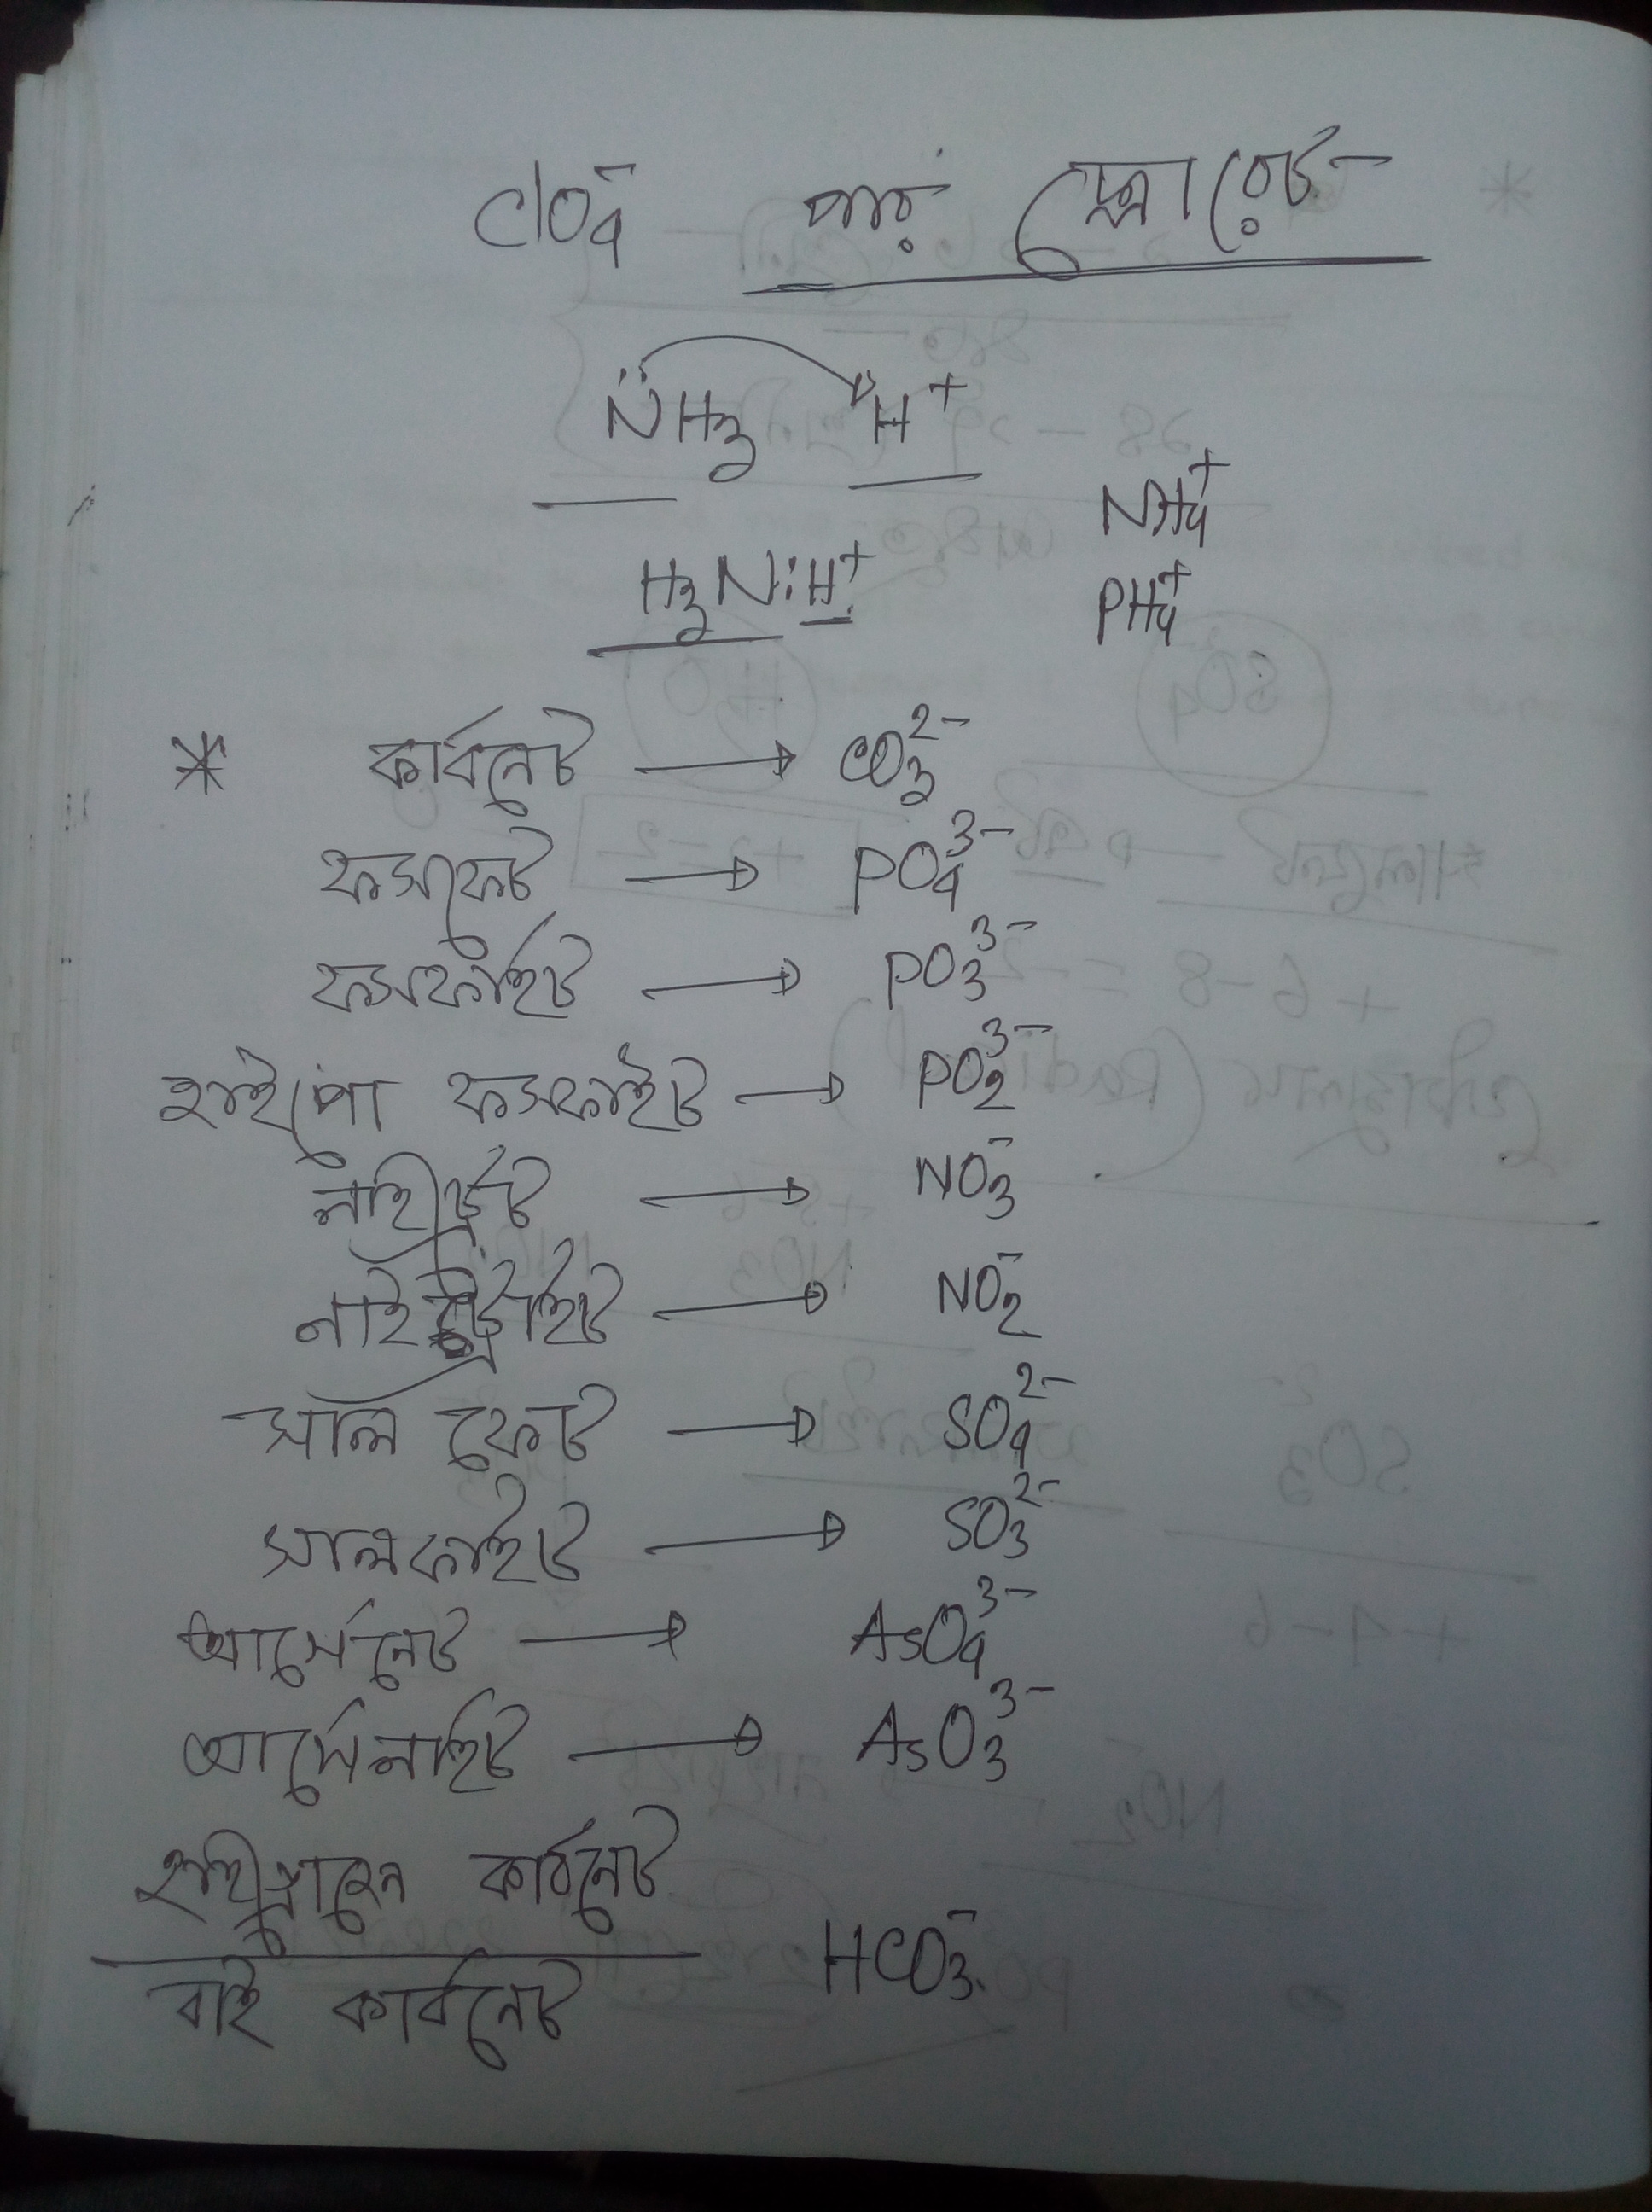 ClO₄⁻ পার ক্লোরেট
N̈H₃ H⁺
NH₄⁺
H₃N:H⁺
PH₄⁺
* কার্বনেট → CO₃²⁻
ফসফেট → PO₄³⁻
ফসফাইট → PO₃³⁻
হাইপো ফসফাইট → PO₂³⁻
নাইট্রেট → NO₃⁻
নাইট্রাইট → NO₂⁻
সাল ফেট → SO₄²⁻
সালফাইট → SO₃²⁻
আর্সেনেট → AsO₄³⁻
আর্সেনাইট → AsO₃³⁻
হাইড্রোজেন কার্বনেট
HCO₃⁻
বাই কার্বনেট